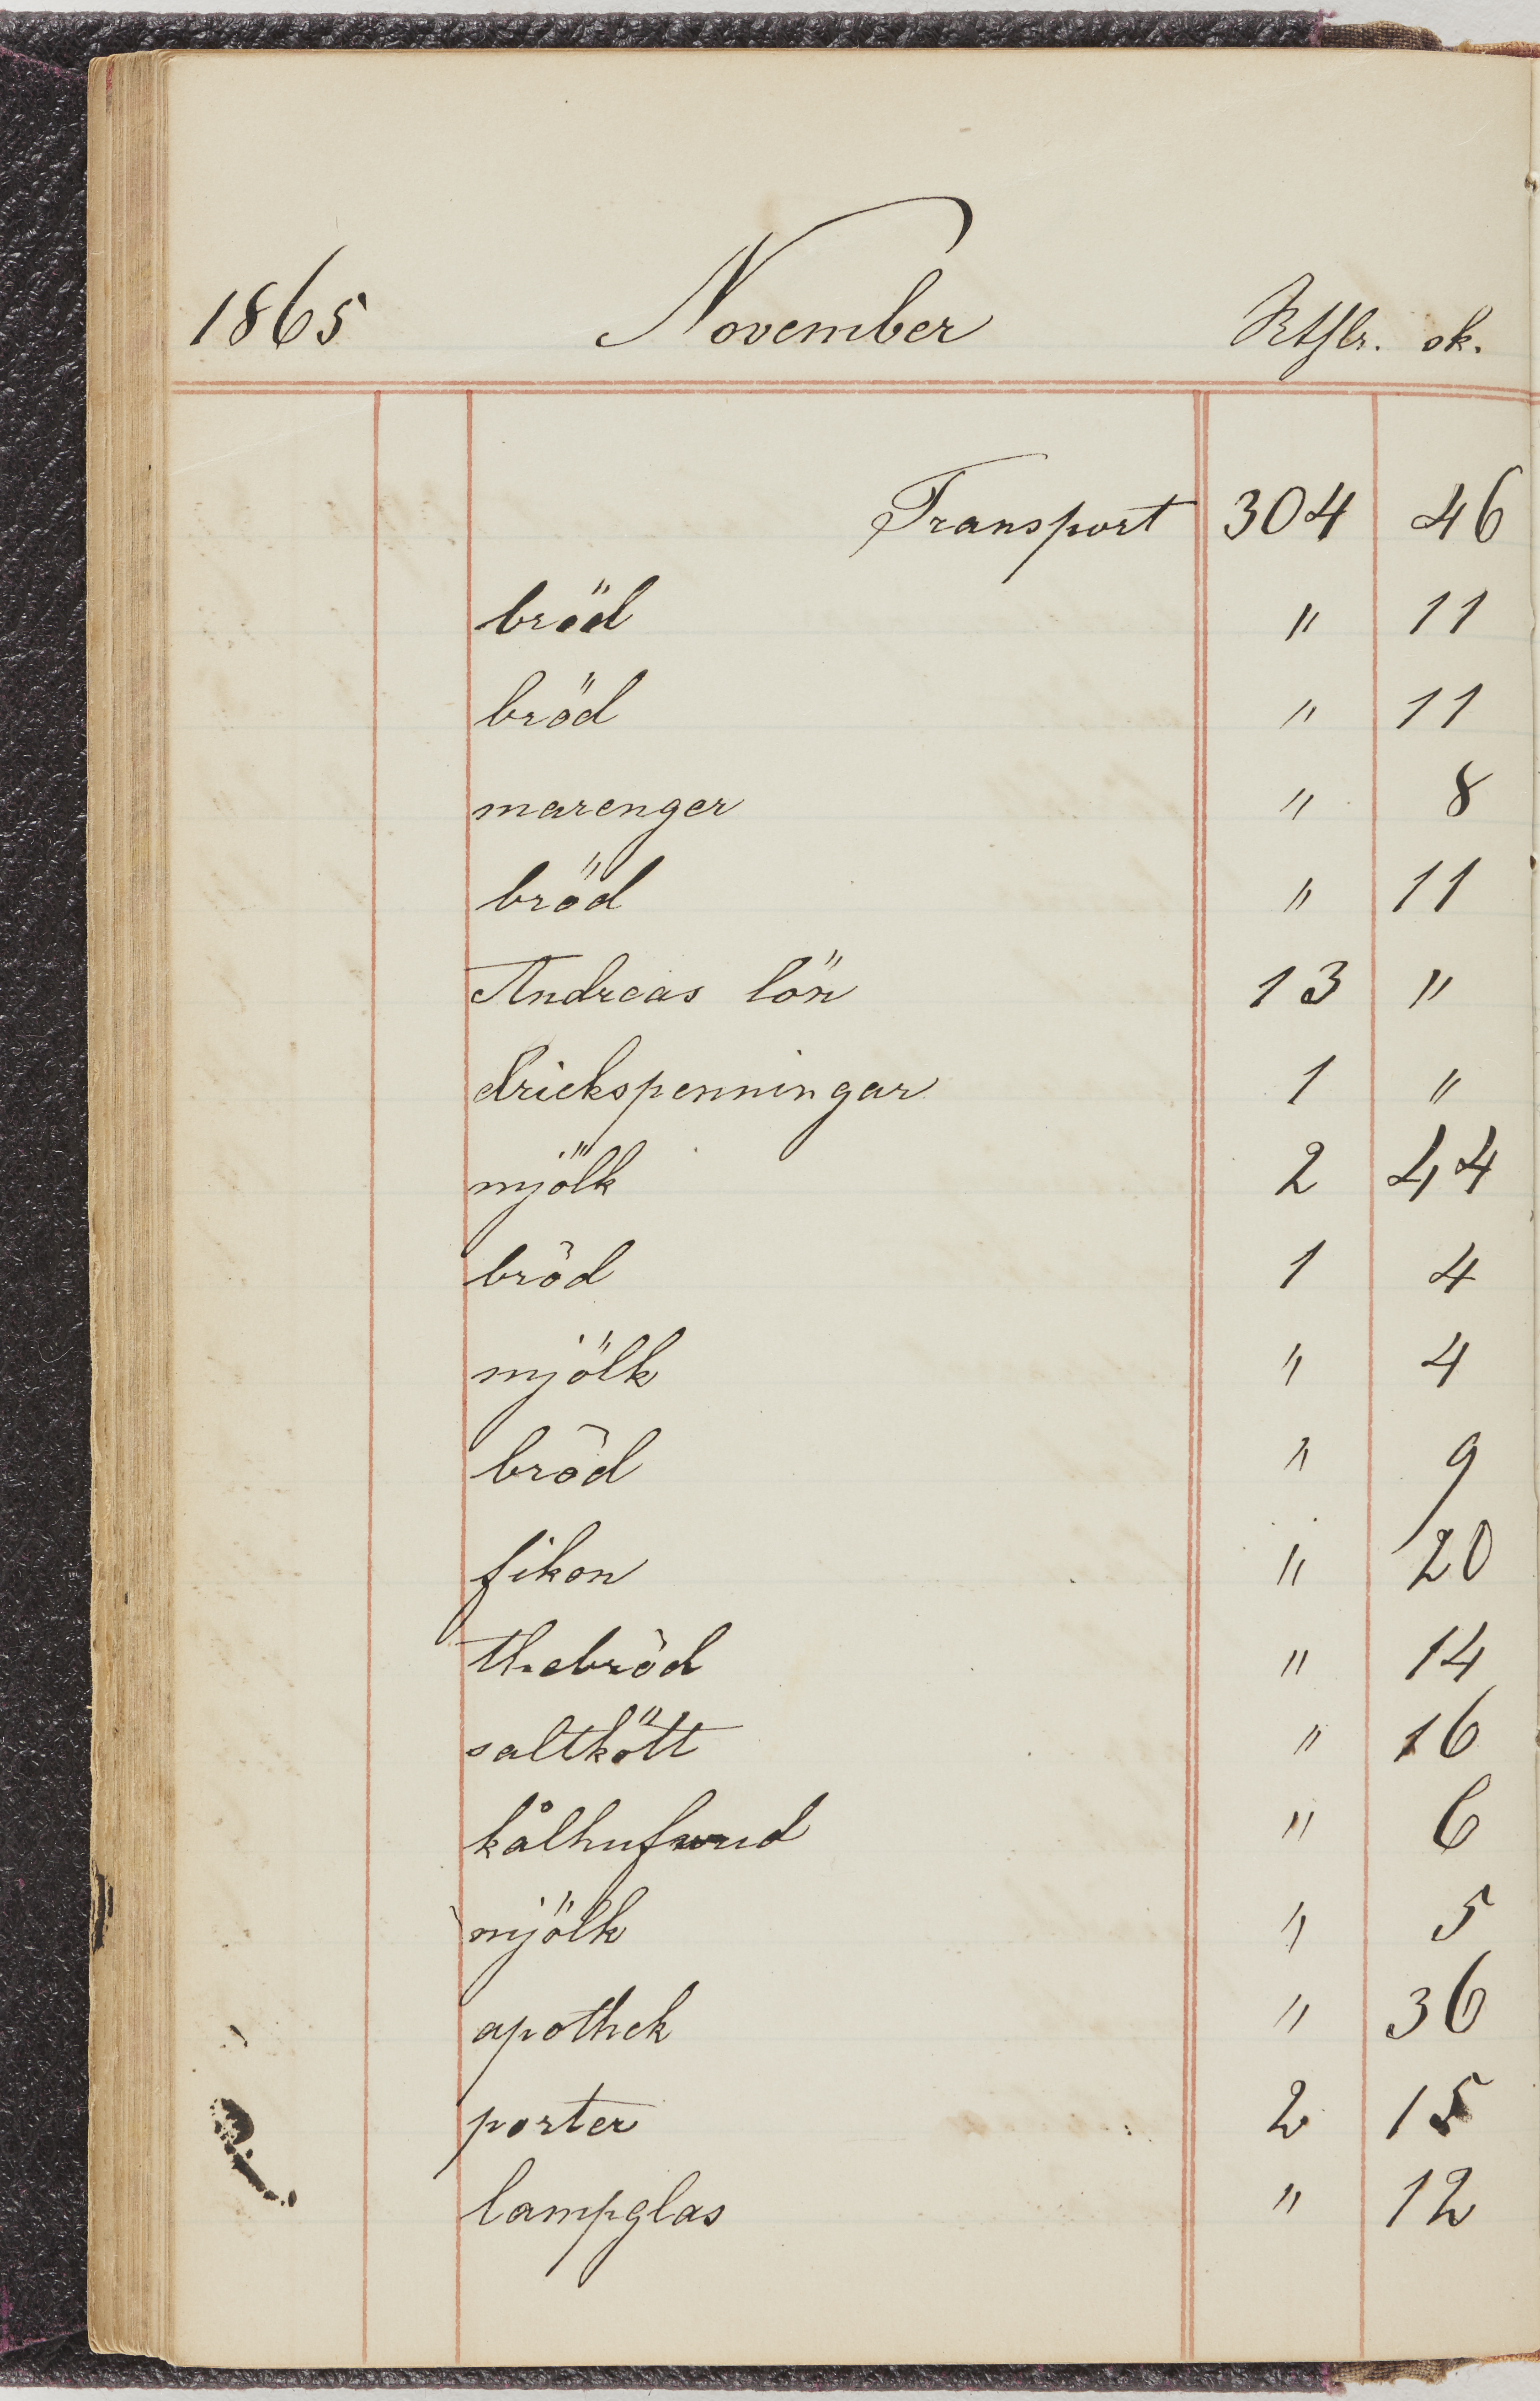 1865 November Rtslr. sk.
Transport 304 46
bröd " 11
bröd " 11
marenger " 8
bröd " 11
Andreas lön 13 "
drickspenningar 1 "
mjölk 2 44
bröd 1 4
mjölk " 4
bröd " 9
fikon " 20
thebröd " 14
saltkött " 16
kålhufvud " 6
mjölk " 5
apothek " 36
porter 2 15
lampglas " 12